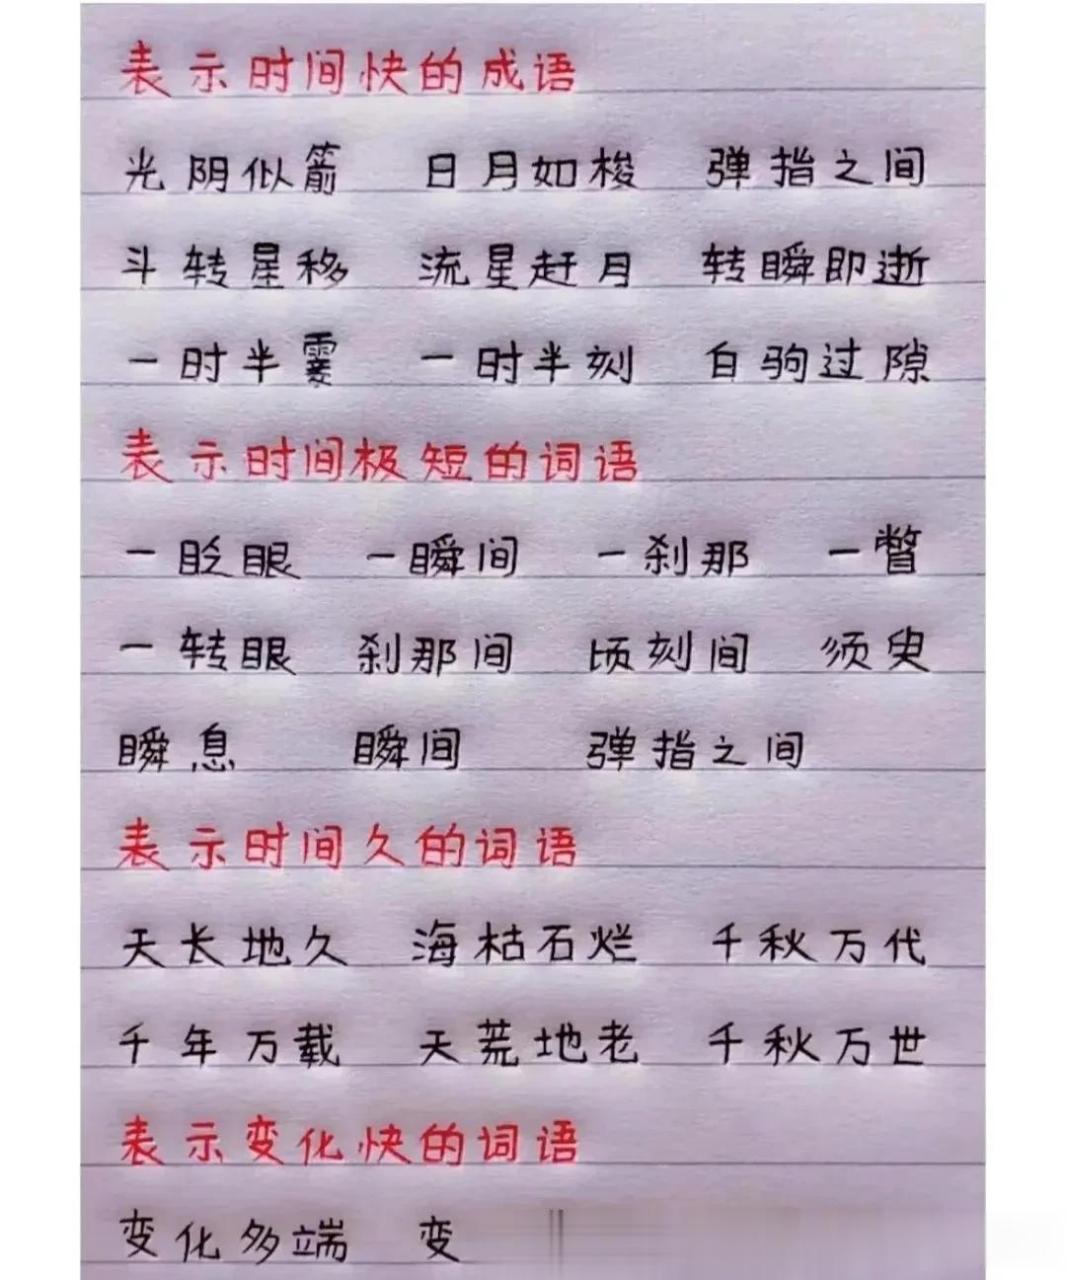 表示时间快的成语
光阴似箭 日月如梭 弹指之间
斗转星移 流星赶月 转瞬即逝
一时半霎 一时半刻 白驹过隙
表示时间极短的词语
一眨眼 一瞬间 一刹那 一瞥
一转眼 刹那间 顷刻间 须臾
瞬息 瞬间 弹指之间
表示时间久的词语
天长地久 海枯石烂 千秋万代
千年万载 天荒地老 千秋万世
表示变化快的词语
变化多端 变